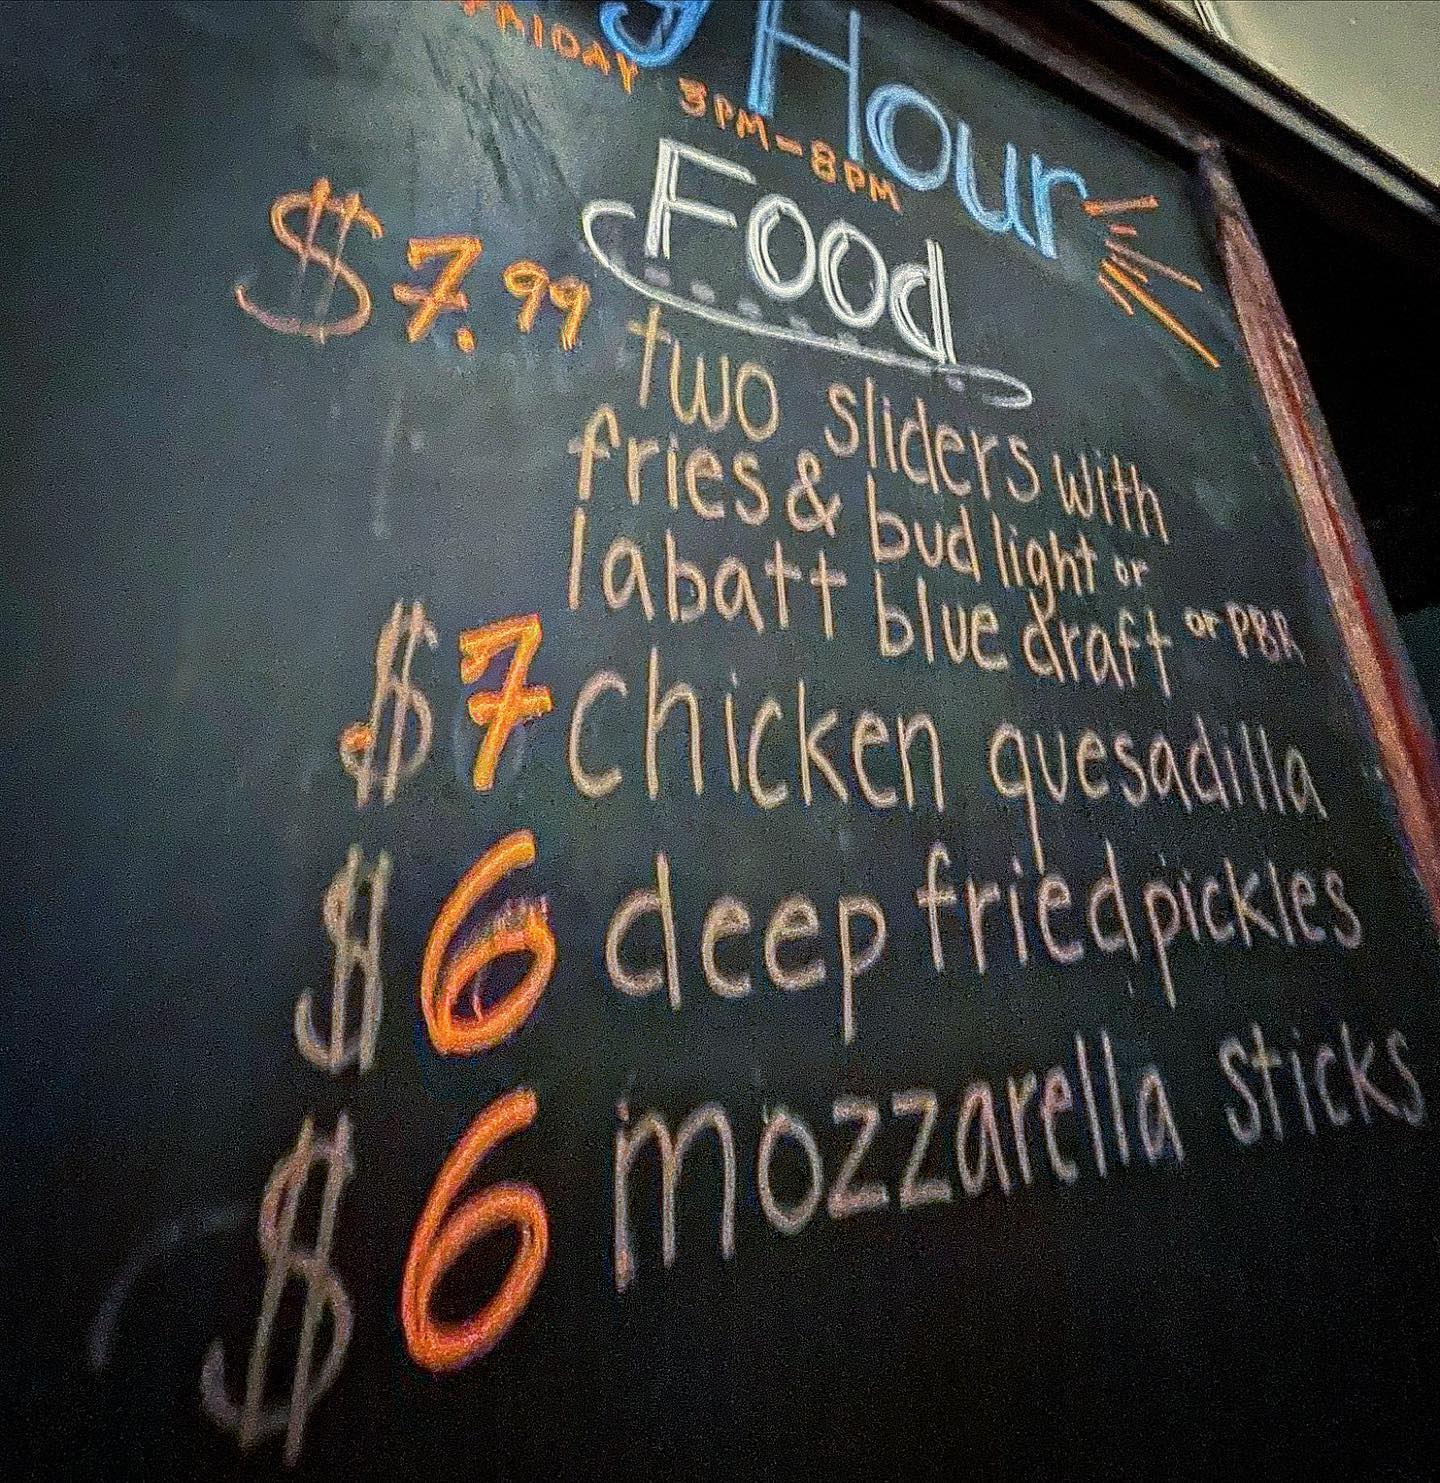 y Hour
FRIDAY 3PM-8PM
Food
$7.99 two sliders with
fries & bud light or
labatt blue draft or PBR
$7 chicken quesadilla
$6 deep fried pickles
$6 mozzarella sticks